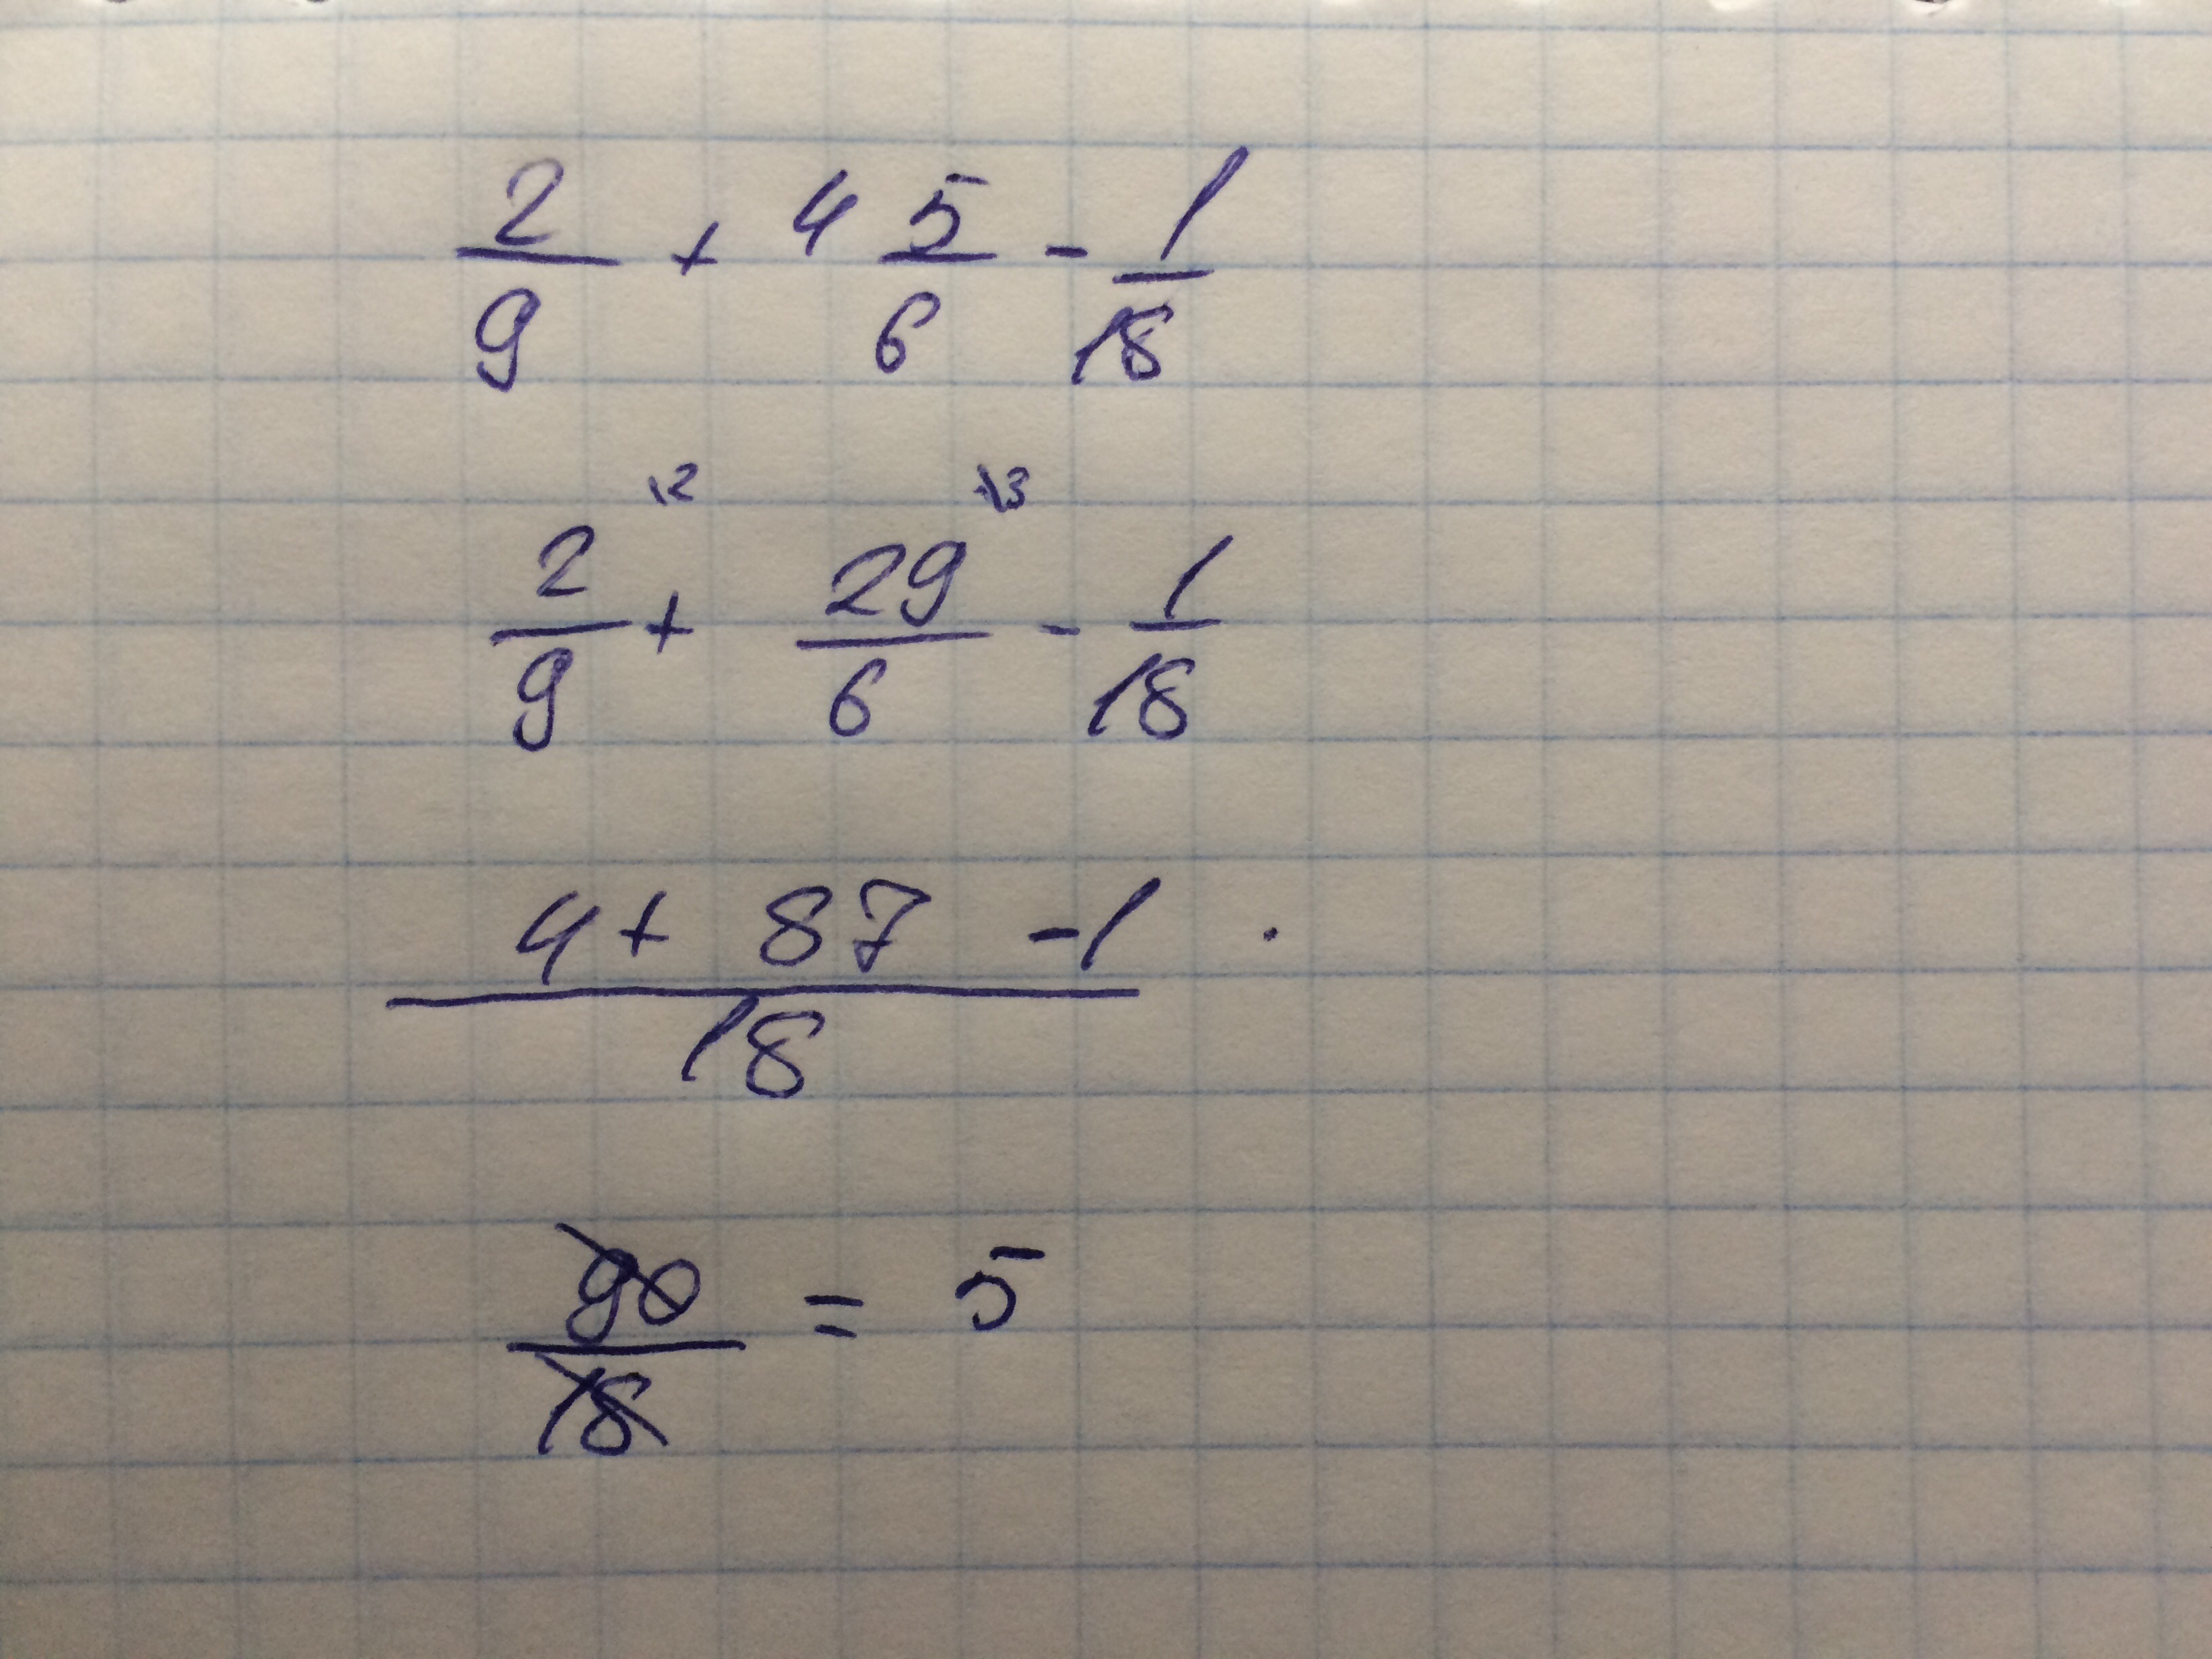 2/9 + 4 5/6 - 1/18
2/9 \2 + 29/6 \3 - 1/18
4 + 87 - 1 / 18
90/18 = 5